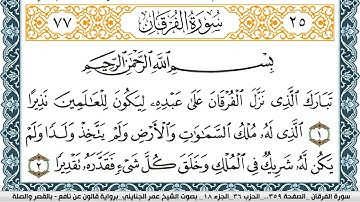 ٧٧ سُورَةُ الْفُرْقَانِ ٢٥
بِسْمِ اللَّهِ الرَّحْمَٰنِ الرَّحِيمِ
تَبَارَكَ الَّذِي نَزَّلَ الْفُرْقَانَ عَلَىٰ عَبْدِهِ لِيَكُونَ لِلْعَالَمِينَ نَذِيرًا
١ الَّذِي لَهُ مُلْكُ السَّمَاوَاتِ وَالْأَرْضِ وَلَمْ يَتَّخِذْ وَلَدًا وَلَمْ
يَكُن لَّهُ شَرِيكٌ فِي الْمُلْكِ وَخَلَقَ كُلَّ شَيْءٍ فَقَدَّرَهُ تَقْدِيرًا ٢
سورة الفرقان - الصفحة ٣٥٩ - الحزب ٣٦ - الجزء ١٨ - بصوت الشيخ عمر الجنايني - برواية قالون عن نافع - بالقصر والصلة